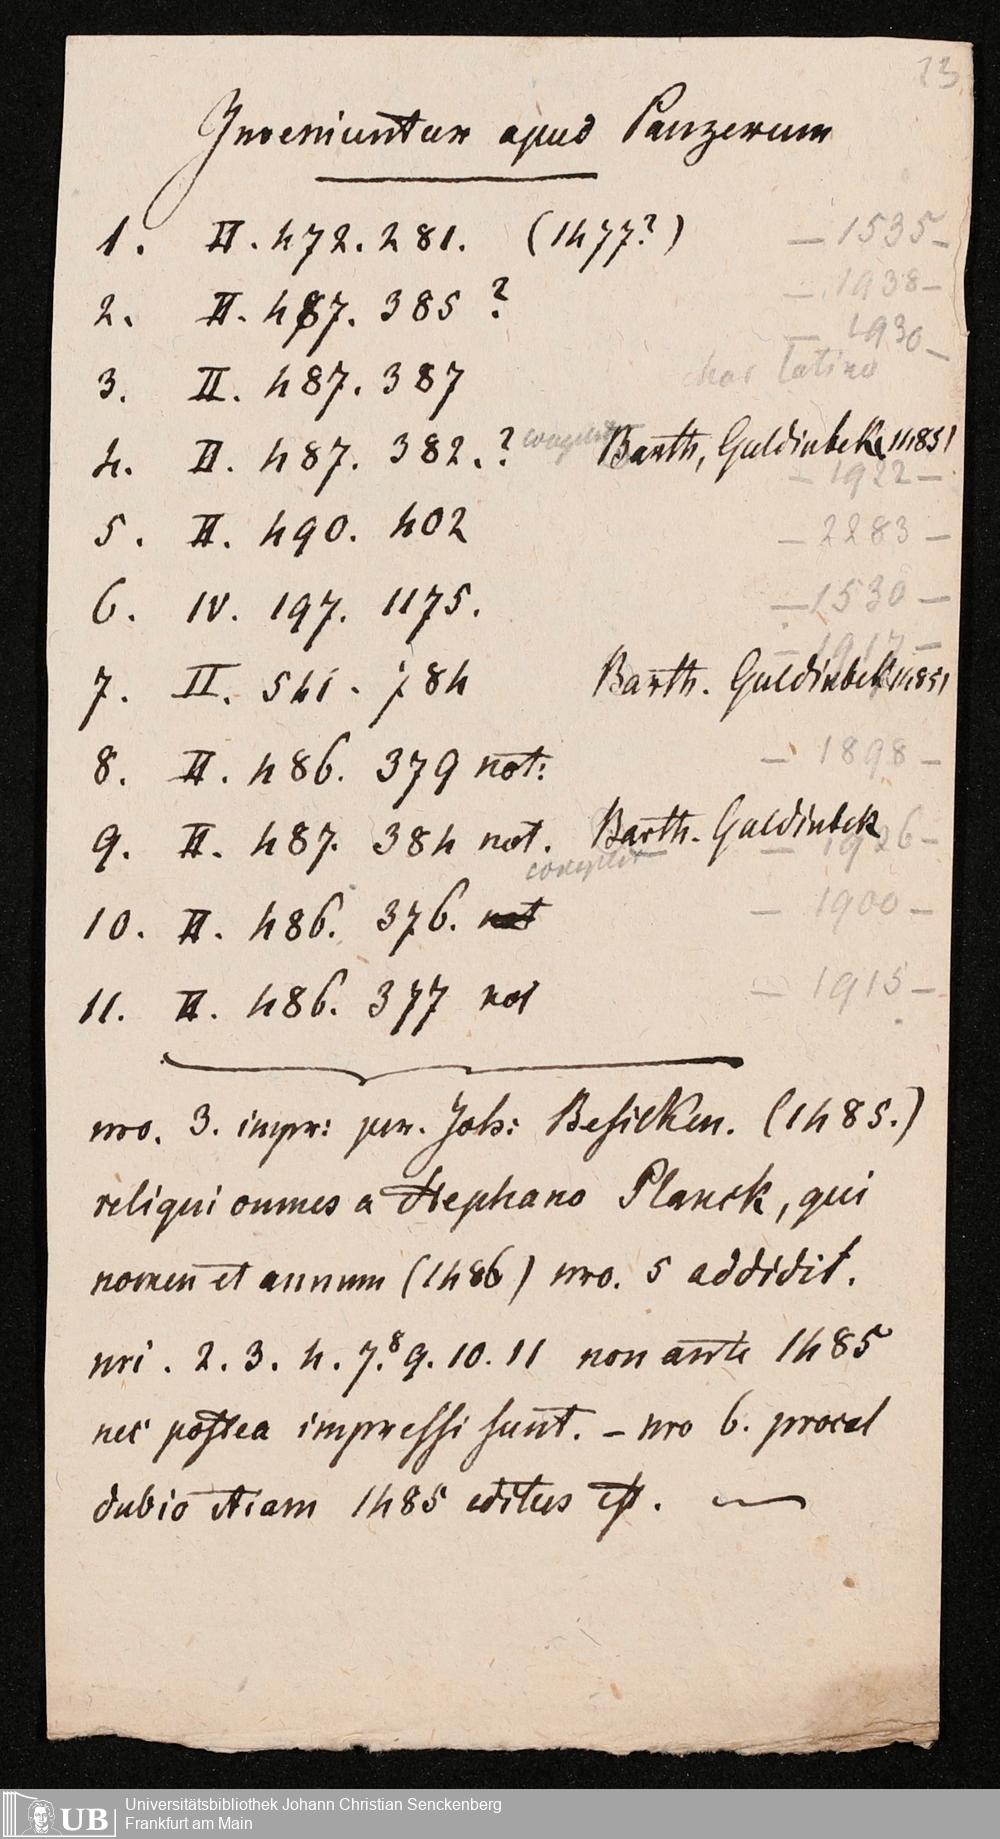 23
Inveniuntur apud Panzerum
1. II. 472. 281. (1477?) — 1535 —
2. II. 487. 385 ? — 1938 —
— 1930 —
3. II. 487. 387 char latino
4. II. 487. 382. ? Barth, Guldinbeke 1485)
— 1922 —
5. II. 490. 402 — 2283 —
6. IV. 197. 1175. — 1530 —
— 1917 —
7. II. 541. 784 Barth. Guldinbek 1485)
8. II. 486. 379 not: — 1898 —
9. II. 487. 384 not. Barth. Guldinbek — 1926 —
10. II. 486. 376. not — 1900 —
11. II. 486. 377 not — 1915 —
nro. 3. impr: per. Joh: Besicken. (1485.)
reliqui omnes a Stephano Planck, qui
nomen et annum (1486) nro. 5 addidit.
nri. 2. 3. 4. 7. 8 9. 10. 11 non ante 1485
nec postea impressi sunt. – nro 6. procul
dubio etiam 1485 editus est. —
UB Universitätsbibliothek Johann Christian Senckenberg
Frankfurt am Main